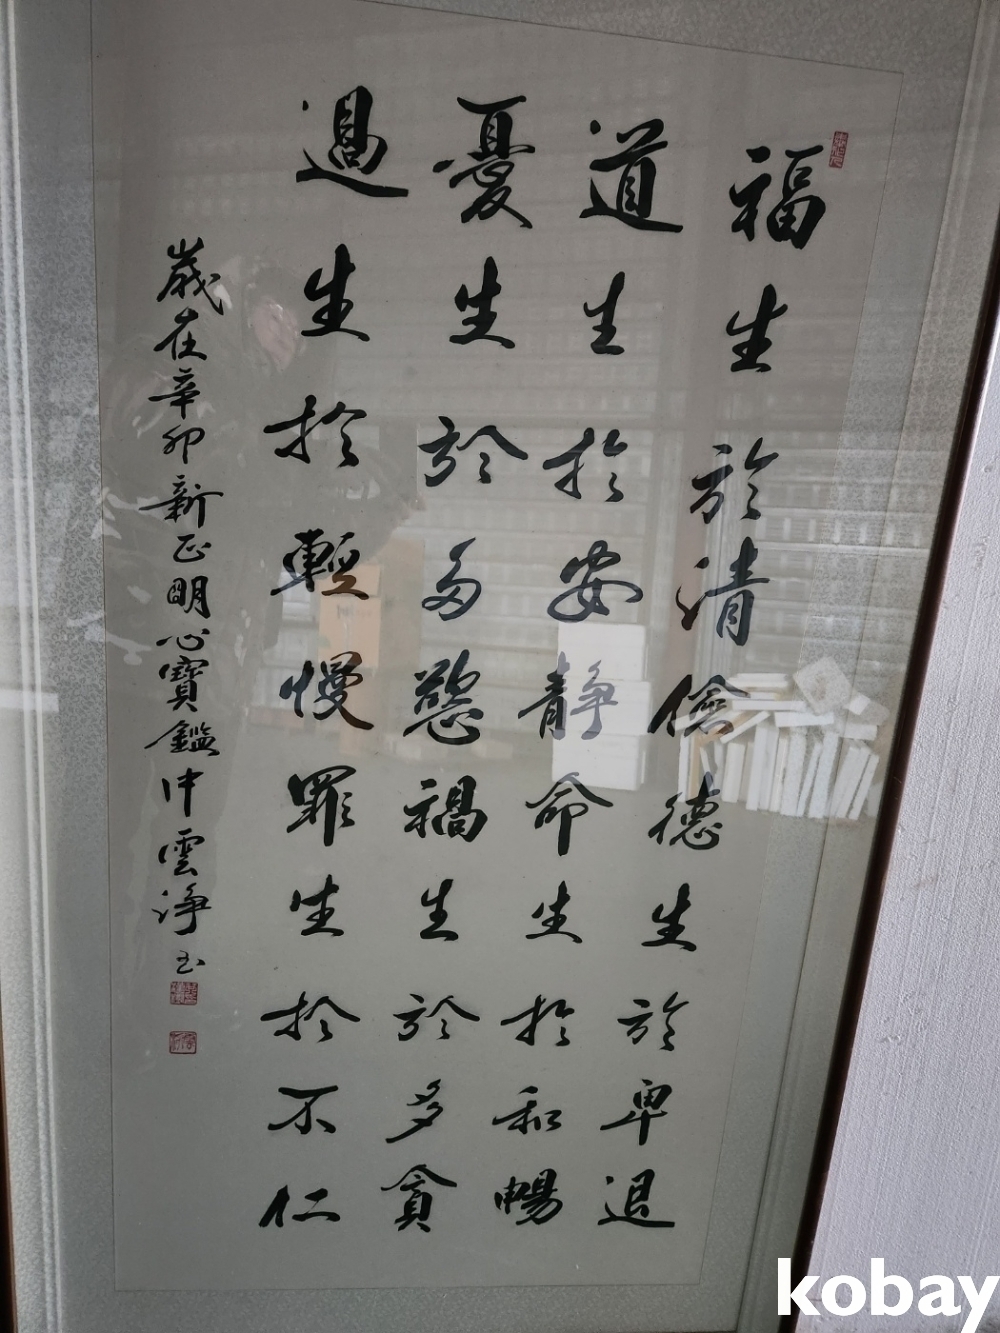 福生於清儉德生於卑退
道生於安靜命生於和暢
憂生於多慾禍生於多貪
過生於輕慢罪生於不仁
歲在辛卯新正明心寶鑑中雲淨書
kobay